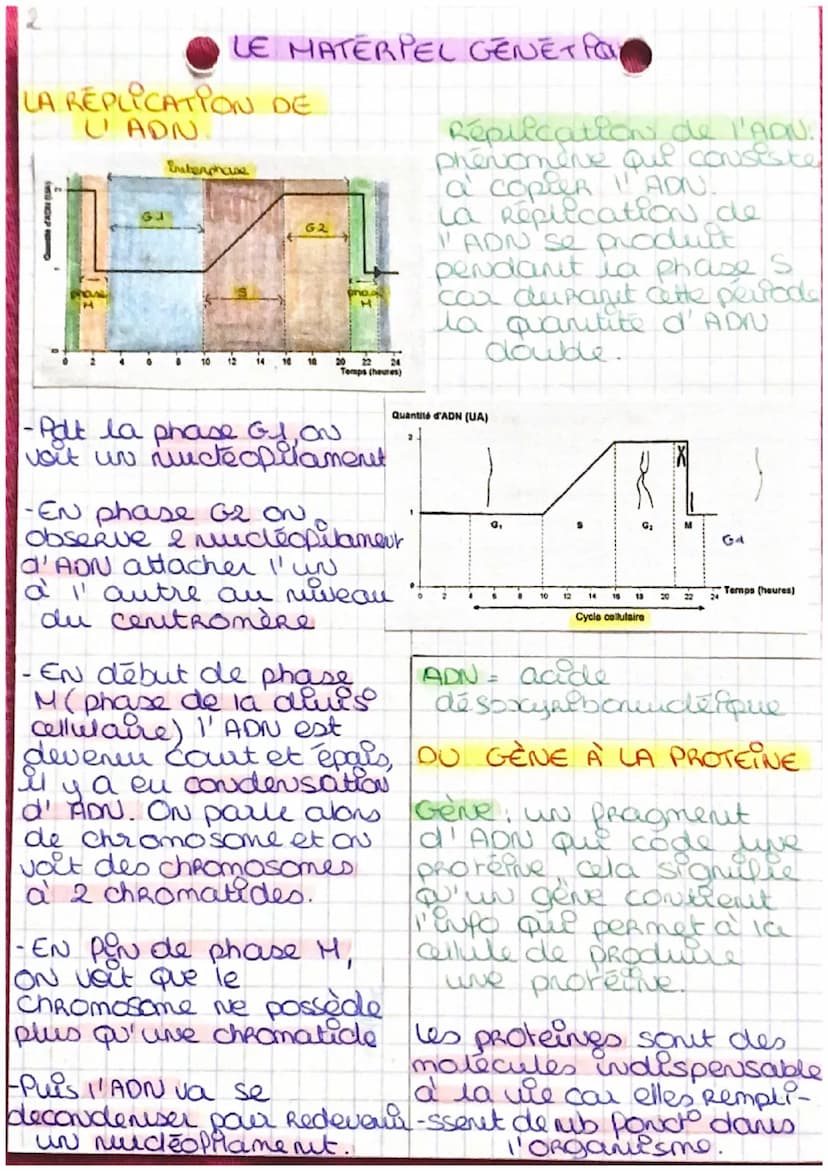 2
LE MATÉRIEL GÉNÉTIQ
LA RÉPLICATION DE
L'ADN
Interphase
Quantité d'ADN (UA)
2
1
0
G1
G2
S
phase
M
phase
M
0 2 4 6 8 10 12 14 16 18 20 22 24
Temps (heures)
Réplication de l'ADN:
phénomène qui consiste
à copier l'ADN.
La Réplication de
l'ADN se produit
pendant la phase S
car durant cette période
la quantité d'ADN
double.
- Pdt la phase G1 on
voit un nucléofilament
- En phase G2 on
observe 2 nucléofilament
d'ADN attacher l'un
à l'autre au niveau
du centromère
Quantité d'ADN (UA)
2
1
0
G₁
S
G₂
M
G1
0 2 4 6 8 10 12 14 16 18 20 22 24
Temps (heures)
Cycle cellulaire
- En début de phase
M (phase de la divis°
cellulaire) l'ADN est
devenu court et épais,
il y a eu condensation
d'ADN. On parle alors
de chromosome et on
voit des chromosomes
à 2 chromatides.
- En fin de phase M,
on voit que le
chromosome ne possède
plus qu'une chromatide
- Puis l'ADN va se
decondenser pour redevenir
un nucléofilament.
ADN = acide
désoxyribonucléique
DU GÈNE À LA PROTEÎNE
Gène : un fragment
d'ADN qui code une
protéine, cela signifie
qu'un gène contient
l'info qui permet à la
cellule de produire
une protéine.
Les proteines sont des
molécules indispensable
à la vie car elles rempli-
-ssent de nb fonct° dans
l'organisme.